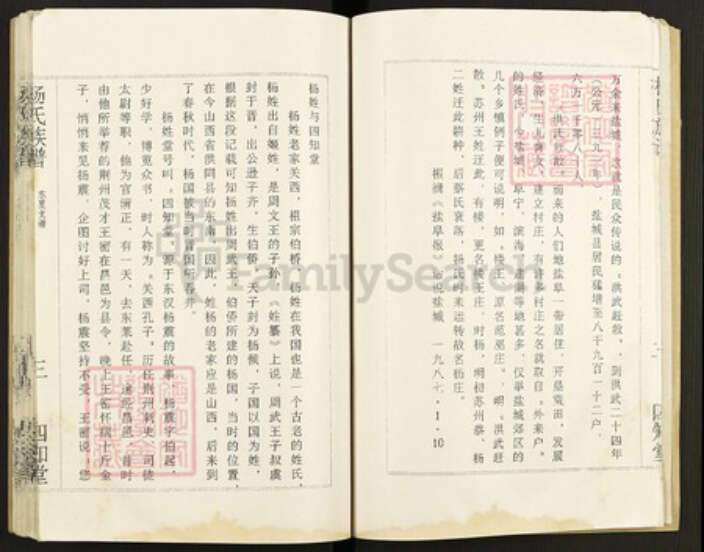 万余来盐城，这就是民众传说的“洪武赶散”，到洪武二十四年
（公元一三九一年），盐城县居民猛增至八千九百一十二户，
六万一千零八十人。
洪武赶散而来的人们地盐阜一带居住，开垦荒田，发展
经济，生儿育女，建立村庄，有许多村庄之名就取自“外来户”
的姓氏，今盐城、阜宁、滨海、建湖等地甚多，仅举盐城郊区的
几个乡镇例子便可说明，如，楼王，原名葱菜庄，明“洪武赶
散”苏州王姓迁此，有楼，更名楼王庄，时杨，明初苏州蔡、杨
二姓迁此耕种，后蔡氏衰落，杨氏时来运转故名杨庄。
根据《盐阜报》话说盐城 一九八七·1·10
杨氏族谱
东里文谱
三
四知堂
杨姓与四知堂
杨姓老家关西，祖宗伯桥，杨姓在我国也是一个古老的姓氏，
杨姓出自姬姓，是周文王的子孙，《姓纂》上说，周武王子叔虞
封于晋，出公逊子齐，生伯侨，天子封为杨候，子国以国为姓，
根据这段记载可知杨姓出周武王，伯侨所建的杨国，当时的位置，
在今山西省洪同县的东南，因此，姓杨的老家应是山西，后来到
了春秋时代，杨国被当时晋国所吞并。
杨姓堂号叫“四知堂”源于东汉杨震的故事，杨震字伯起，
少好学，博览众书，时人称为“关西孔子”历任荆州刺史、司徒
太尉等职，他为官清正，有一天，去东莱赴任，途经昌邑，当时
由他所举荐的荆州茂才王密在昌邑为县令，晚上王密怀揣十斤金
子，悄悄来见杨震，企图讨好上司，杨震坚持不受，王密说，您
FamilySearch